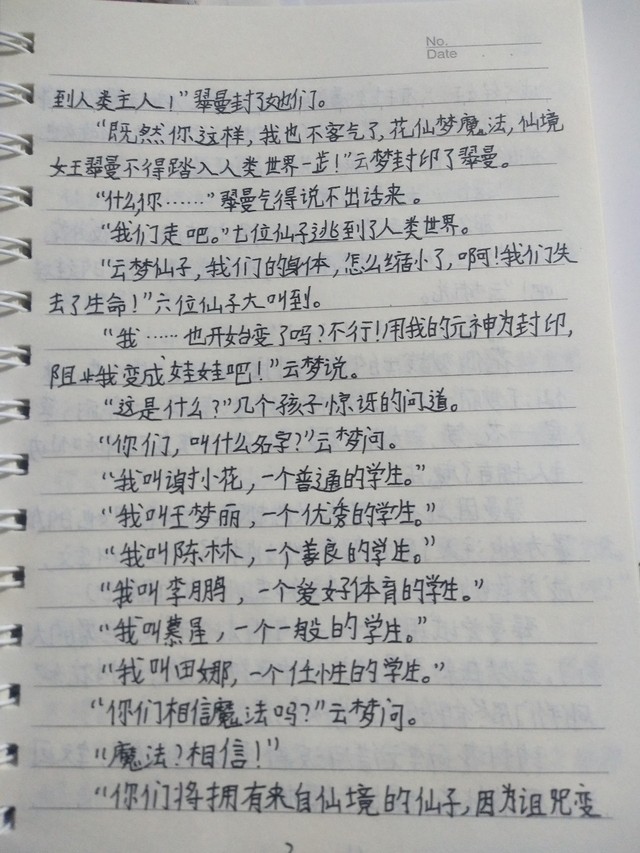 No.
Date
到人类主人！”翠曼封了她们。
“既然你这样，我也不客气了，花仙梦魔法，仙境
女王翠曼不得踏入人类世界一步！”云梦封印了翠曼。
“什么，你……”翠曼气得说不出话来。
“我们走吧。”七位仙子逃到了人类世界。
“云梦仙子，我们的身体，怎么缩小了，啊！我们失
去了生命！”六位仙子大叫到。
“我……也开始变了吗？不行！用我的元神为封印，
阻止我变成娃娃吧！”云梦说。
“这是什么？”几个孩子惊讶的问道。
“你们，叫什么名字？”云梦问。
“我叫谢小花，一个普通的学生。”
“我叫王梦丽，一个优秀的学生。”
“我叫陈林，一个善良的学生。”
“我叫李月鹃，一个爱好体育的学生。”
“我叫慕星，一个一般的学生。”
“我叫田娜，一个任性的学生。”
“你们相信魔法吗？”云梦问。
“魔法？相信！”
“你们将拥有来自仙境的仙子，因为诅咒变